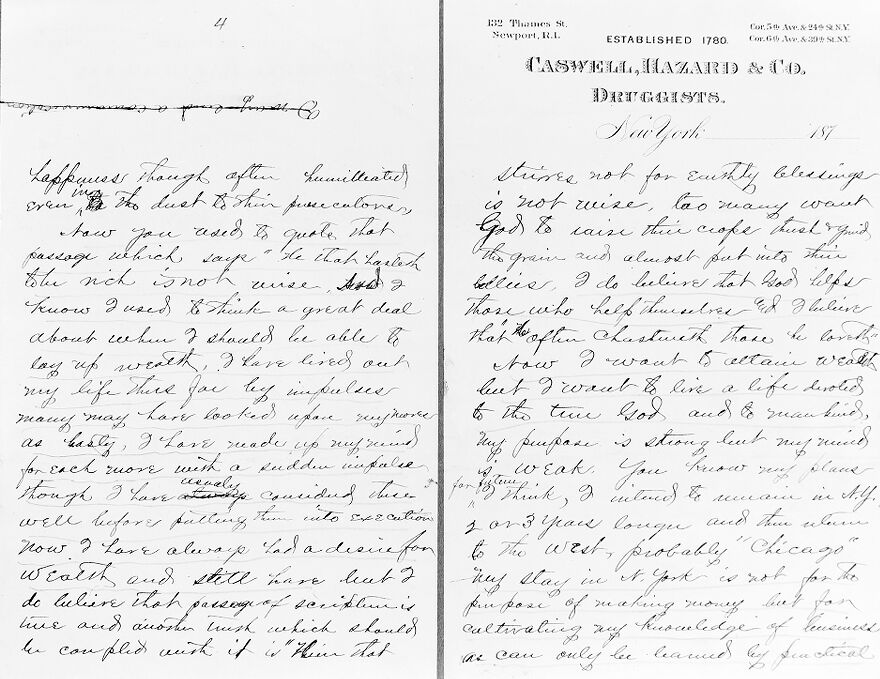 4
happiness though often humiliated
even in the dust to their prosecutors,
Now you used to quote that
passage which says "He that hasteth
to be rich is not wise, And I
know I used to think a great deal
about when I should be able to
lay up wealth, I have lived out
my life thus far by impulses
many may have looked upon my moves
as hasty, I have made up my mind
for each move with a sudden impulse
though I have usualy considerd these
well before putting them into execution
now I have always had a desire for
wealth and still have but I
do believe that passage of scripture is
true and another truth which should
be coupled with it is "Him that
132 Thames St.
Newport, R.I.
Cor. 5th Ave. & 24th St. N.Y.
Cor. 6th Ave. & 39th St. N.Y.
ESTABLISHED 1780.
CASWELL, HAZARD & CO.
DRUGGISTS.
New York 187
strives not for earthly blessings
is not wise, too many want
God to raise their crops thrash & grind
the grain and almost put into their
bellies, I do believe that God helps
those who help themselves & I believe
that "he often Chasteneth those he loveth"
Now I want to attain wealth
but I want to live a life devoted
to the true God and to mankind,
my purpose is strong but my mind
is weak. You know my plans
for future I think, I intend to remain in N.Y.
2 or 3 years longer and then return
to the West, probably "Chicago"
My stay in N. York is not for the
purpose of making money but for
cultivating my knowledge of business
as can only be learned by practical